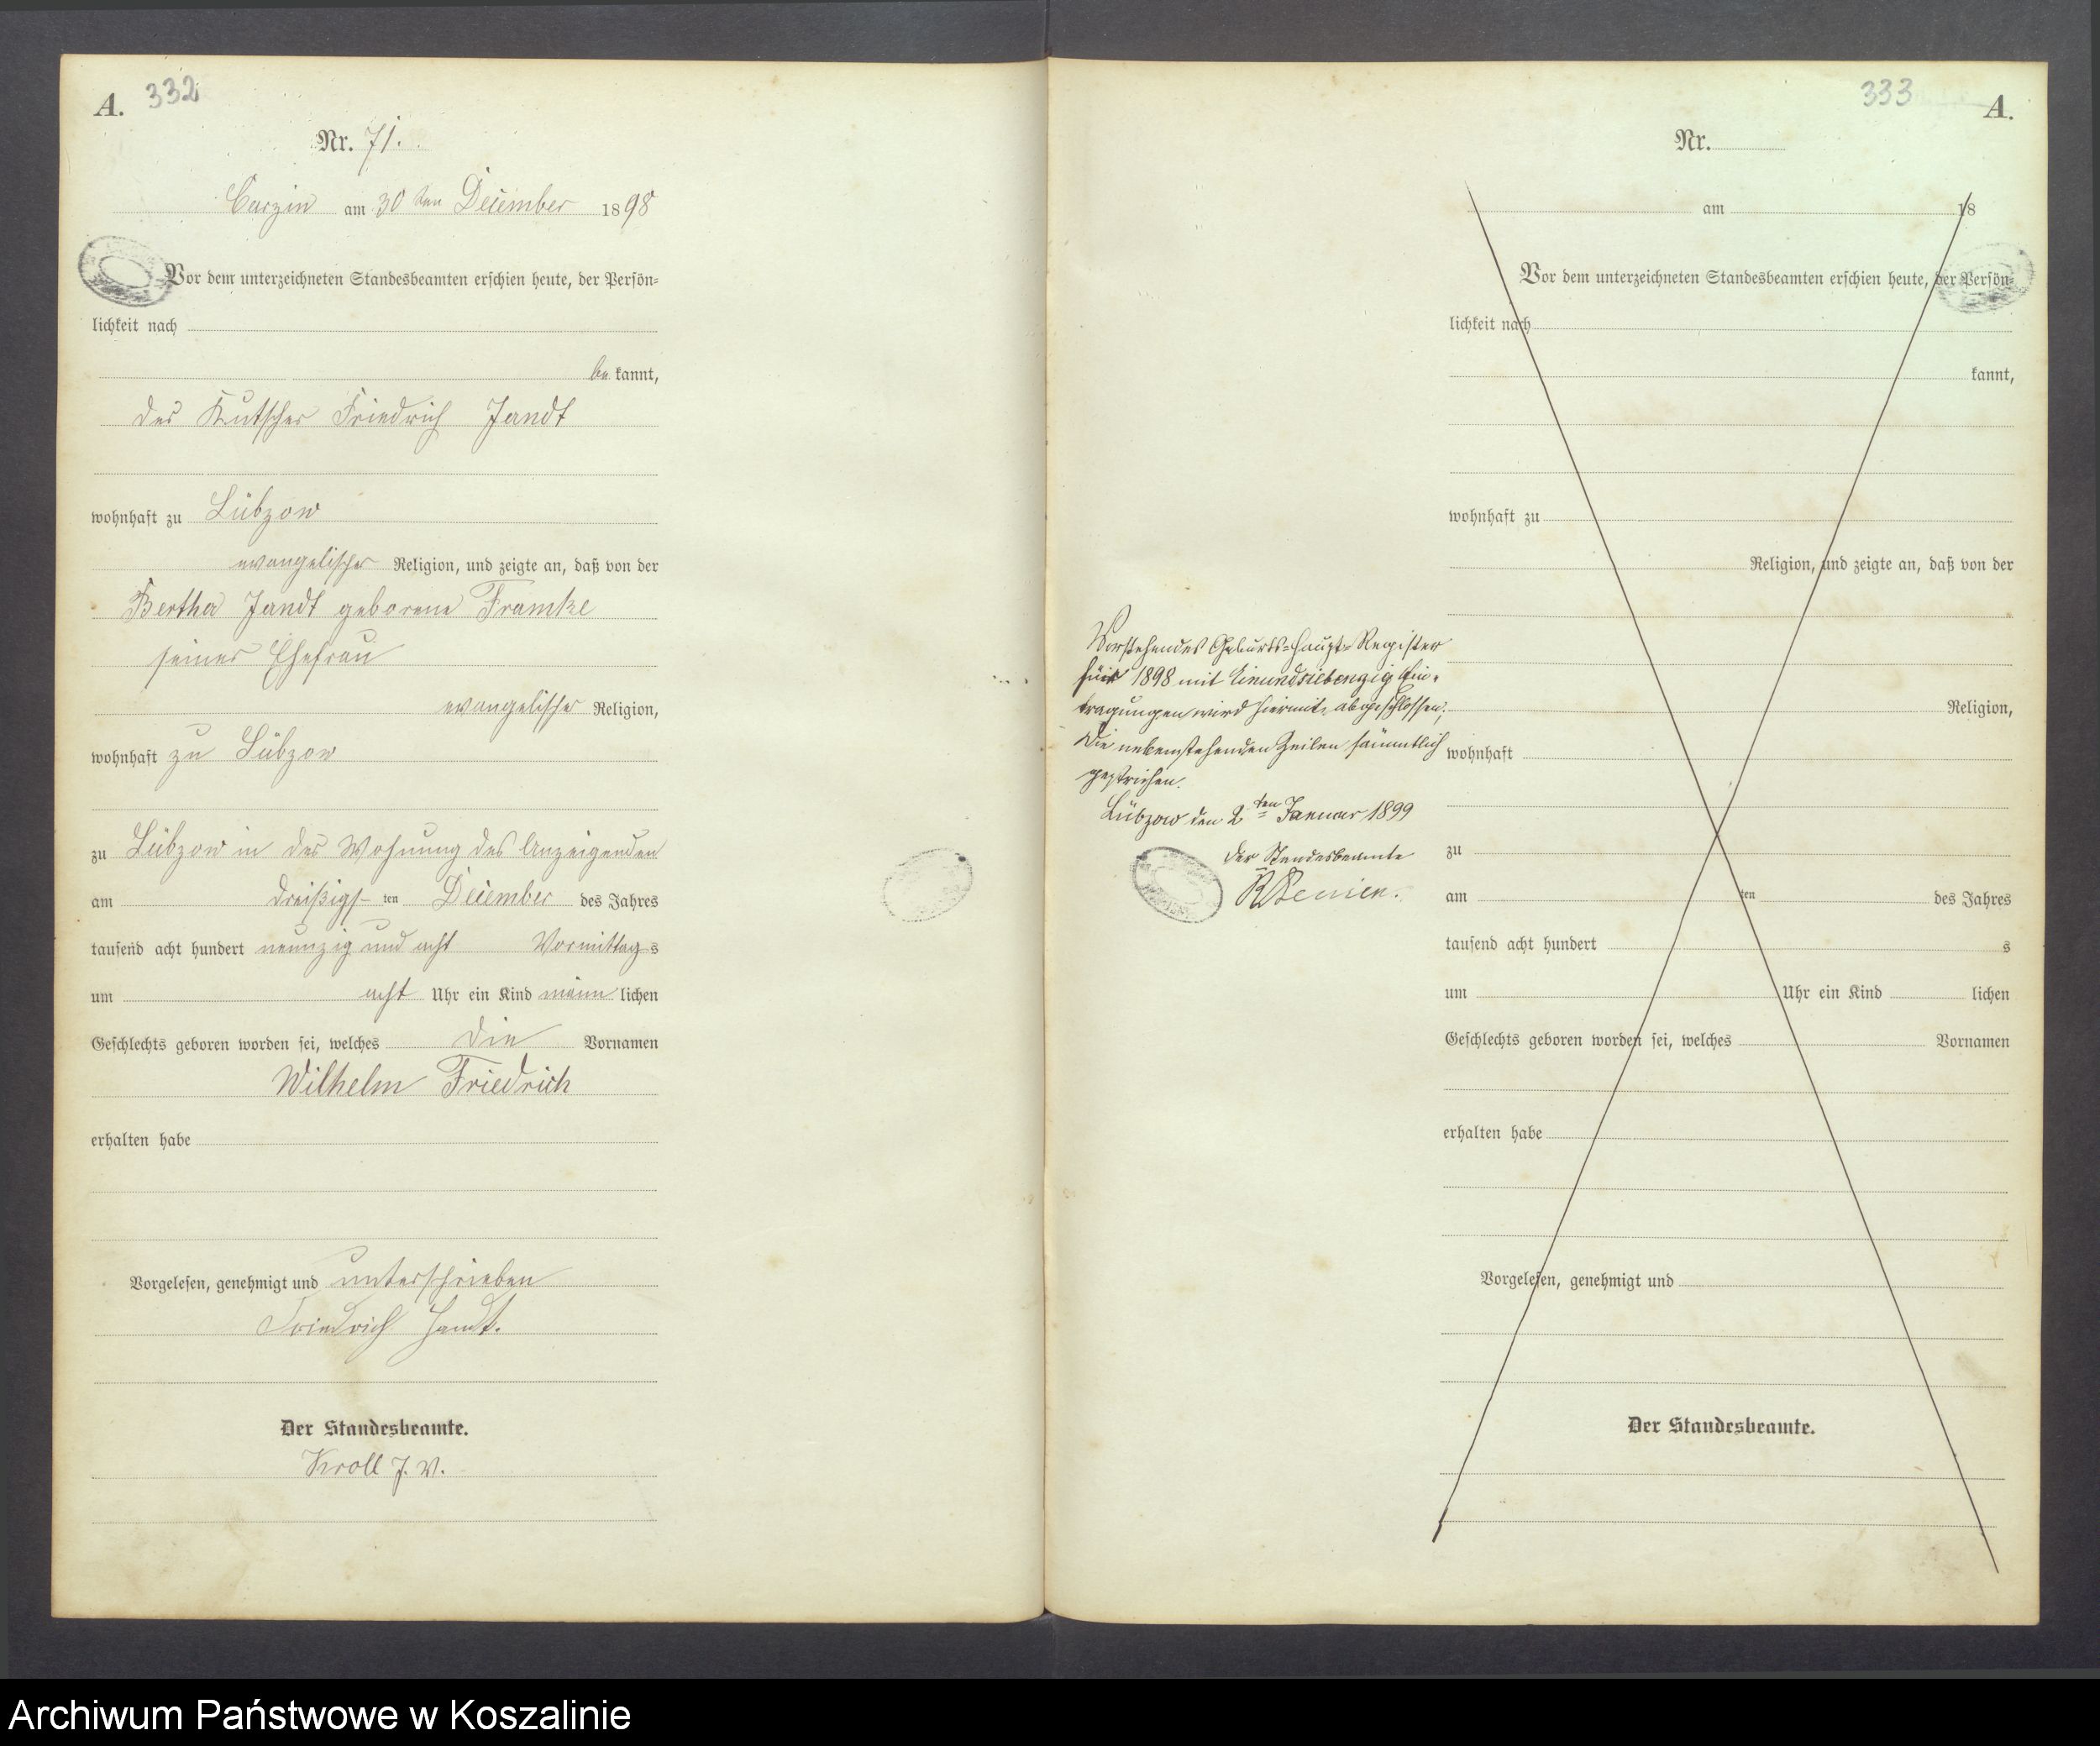 A.
332
Nr. 71.
Carzin am 30 ten December 1898
Vor dem unterzeichneten Standesbeamten erschien heute, der Persön-
lichkeit nach
be kannt,
der Kutscher Friedrich Jandt
wohnhaft zu Lübzow
evangelischer Religion, und zeigte an, daß von der
Bertha Jandt geborene Framke
seiner Ehefrau
evangelischer Religion,
wohnhaft zu Lübzow
zu Lübzow in der Wohnung des Anzeigenden
am dreißigs- ten December des Jahres
tausend acht hundert neunzig und acht Vormittag s
um acht Uhr ein Kind männ lichen
Geschlechts geboren worden sei, welches die Vornamen
Wilhelm Friedrich
erhalten habe
Vorgelesen, genehmigt und unterschrieben
Friedrich Jandt.
Der Standesbeamte.
Kroll J. V.
333
A.
Nr.
am 18
Vor dem unterzeichneten Standesbeamten erschien heute, der Persön-
lichkeit nach
kannt,
wohnhaft zu
Religion, und zeigte an, daß von der
Religion,
wohnhaft
zu
am ten des Jahres
tausend acht hundert s
um Uhr ein Kind lichen
Geschlechts geboren worden sei, welches Vornamen
erhalten habe
Vorgelesen, genehmigt und
Der Standesbeamte.
Vorstehendes Geburts-Haupt-Register
für 1898 mit Einundsiebenzig Ein-
tragungen wird hiermit abgeschlossen.
Die nebenstehenden Zeilen sämmtlich
gestrichen.
Lübzow den 2ten Januar 1899
Der Standesbeamte
Archiwum Państwowe w Koszalinie